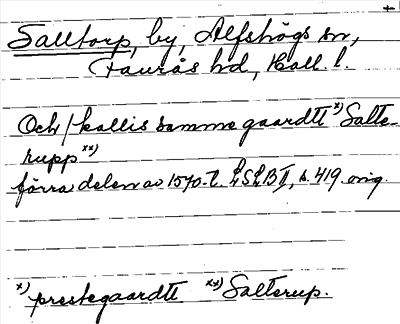 Salltorp, by, Alfshögs sn,
Faurås hd, Hall. l.
Och kallis samme gaardtt x) Salte-
rupp xx)
förra delen av 1570-t. LSLB II, s. 419. orig.
x) prestegaardtt xx) Salterup.